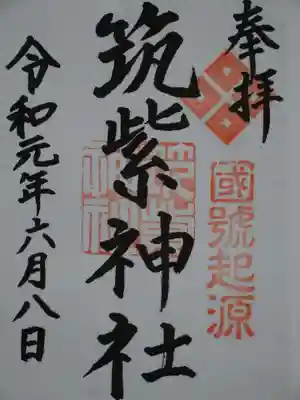 奉拝
國號起源
筑紫神社
令和元年六月八日